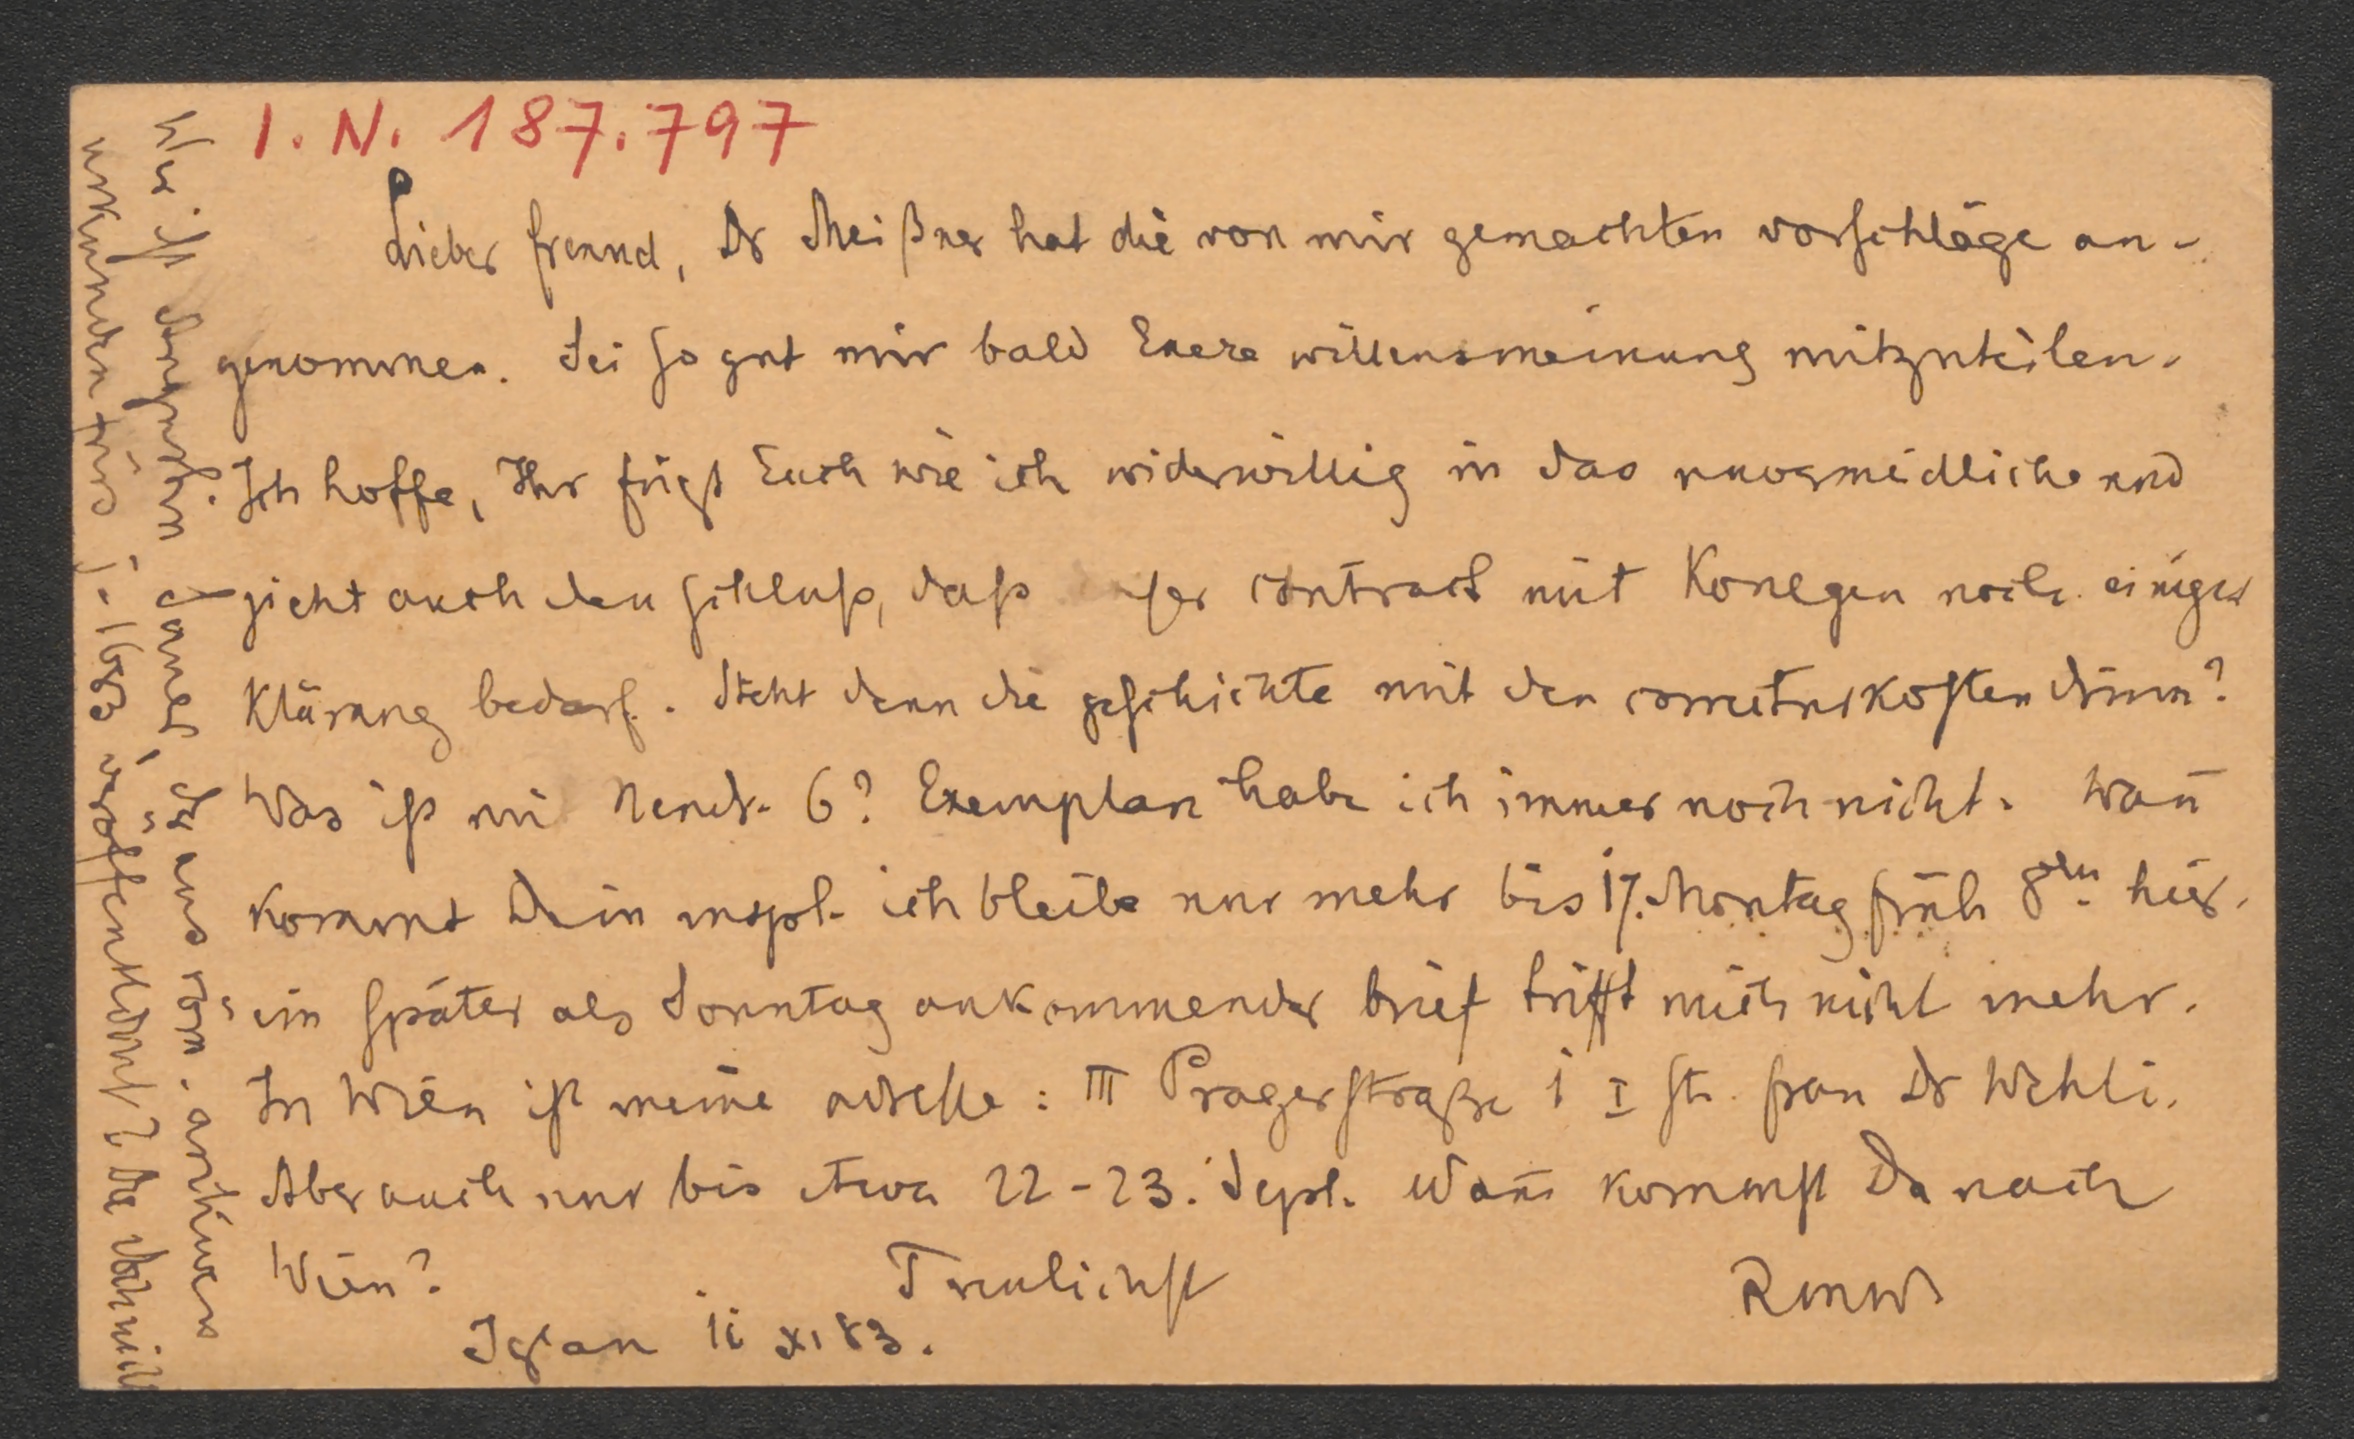 I. N. 187.797
Lieber freund, Dr Meißner hat die von mir gemachten vorschläge an-
genommen. Sei so gut mir bald Euere willensmeinung mitzuteilen.
Ich hoffe, Ihr fügt Euch wie ich widerwillig in das unvermeidliche und
zieht auch den schluß, daß der contract mit Konegen noch einiger
Klärung bedarf. Steht denn die geschichte mit den correcturkosten drinn?
Was ist mit Neudr. 6? Exemplare habe ich immer noch nicht. Wan̄
kommt Dein mspt. ich bleibe nur mehr bis 17. Montag früh hier.
ein später als Sonntag ankommender brief trifft mich nicht mehr.
In Wien ist meine adresse: III Pragerstraße 1 I st. frau Dr Wehli.
Aber auch nur bis etwa 22-23. Sept. Wan̄ kommst Du nach
Wien?
Treulichst
RMW
Iglau 11 XI 83.
Wer ist derjenige Janer, der aus röm. archiven
urkunden fürs j. 1683 veröffentlicht?